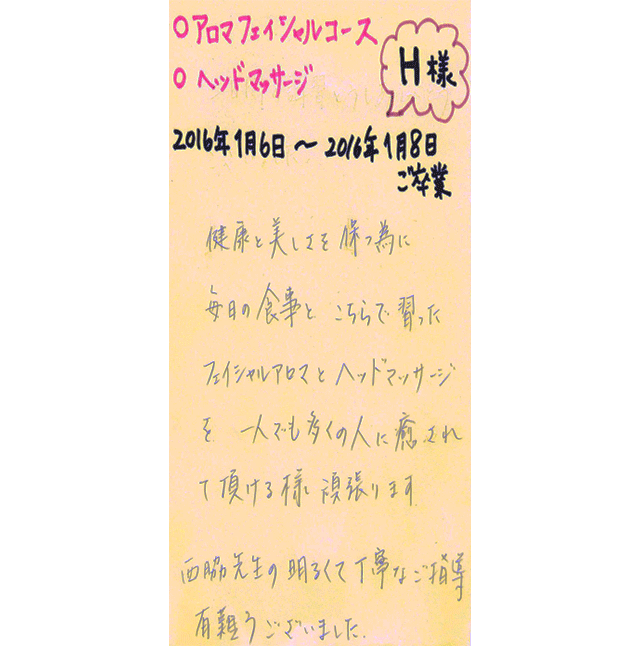 ○アロマフェイシャルコース
○ヘッドマッサージ
H様
2016年1月6日～2016年1月8日
ご卒業
健康と美しさを保つ為に
毎日の食事とこちらで習った
フェイシャルアロマとヘッドマッサージ
を一人でも多くの人に癒され
て頂ける様頑張ります
西脇先生の明るくて丁寧なご指導
有難うございました.